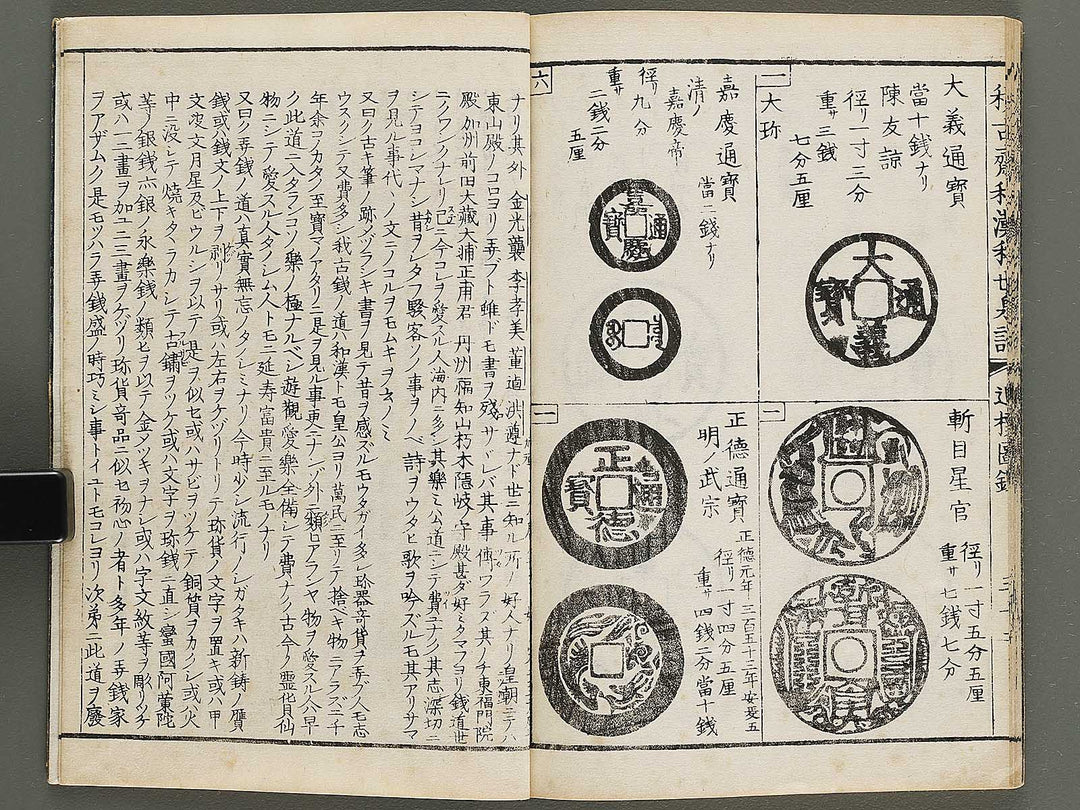 大義通寳
當十銭ナリ
陳友諒
径リ一寸三分
重サ三銭
七分五厘
一
大珎
大義通寳
嘉慶通寳
當二銭ナリ
清ノ
嘉慶帝
径リ九分
重サ
二銭二分
五厘
六
嘉慶通寳
斬目星官
径リ一寸五分五厘
重サ七銭七分
一
正德通寳
明ノ武宗
正德元年
径リ一寸四分五厘
重サ四銭二分當十銭
一
正德通寳
ナリ其外 金光襲 李孝美 董逌 洪遵ナド世ニ知ル所ノ好人ナリ皇朝ニテハ
東山殿ノコロヨリ弄フト雖ドモ書ヲ残サヾレバ其事傳ワラズ其ノチ東福門院
殿 加州前田大藏大浦正甫君 丹州福知山朽木隠岐ノ守殿甚ダ好ミタマフヨリ銭道世
ニクワシクナレリ已ニ今コレヲ愛スル人海内ニ多シ其樂ミ公道ニシテ費エナシ其志深切ニ
シテヨコシマナシ昔ヲシタフ騒客ソノ事ヲノベ詩ヲウタヒ歌ヲ吟ズルモ其アリサマ
ヲ見ル事代
又曰ク古キ筆ノ跡メヅラシキ書ヲ見テ昔ヲ感ズルモウタガイ多シ珍器奇貨ヲ弄ブ人モ志
ウスクシテ又費多シ我古銭ノ道ハ和漢トモ皇公ヨリ萬民ニ至リテ捨ベキ物ニアラズ二千
年余コノカタノ至寳マノアタリニ是ヲ見ル事更ニナシバ外ニ類ヒアランヤ物ヲ愛スル人早
ク此道ニ入タランコソ樂ノ極ナルベシ遊觀愛樂全備シテ費ナク古今ノ靈貨仙
物ニシテ愛スル人タノシム人トモニ延寿富貴ニ至ルモノナリ
又曰ク弄銭ノ道ハ真實無忘ノタノシミナリ今時少シ流行ノシガタキハ新鋳ノ贋
銭或ハ銭文ノ上下ヲ剥リサリ或ハ左右ヲケヅリトリテ珎貨ノ文字ヲ置キ或ハ甲
文夾文月星及ビウルシヲ以テ是ヲ似セ或ハサビヲツケテ銅質ヲカクシ或ハ火
中ニ没シテ焼キタヾラカシテ古鏽ヲツケ或ハ文字ヲ彫テ珎銭ニ直シ蠻國阿蘭陀
等ノ銀銭亦銀ノ永樂銭ノ類ヒヲ以テ金メツキヲナシ或ハ字文紋等ヲ彫リツケ
或ハ一二畫ヲ加エ二三畫ヲケヅリ珎貨奇品ニ似セ初心ノ者ト多年ノ弄銭家
ヲアザムク是モツハラ弄銭盛ノ時巧ミシ事トイエトモコレヨリ次第ニ此道ヲ廢